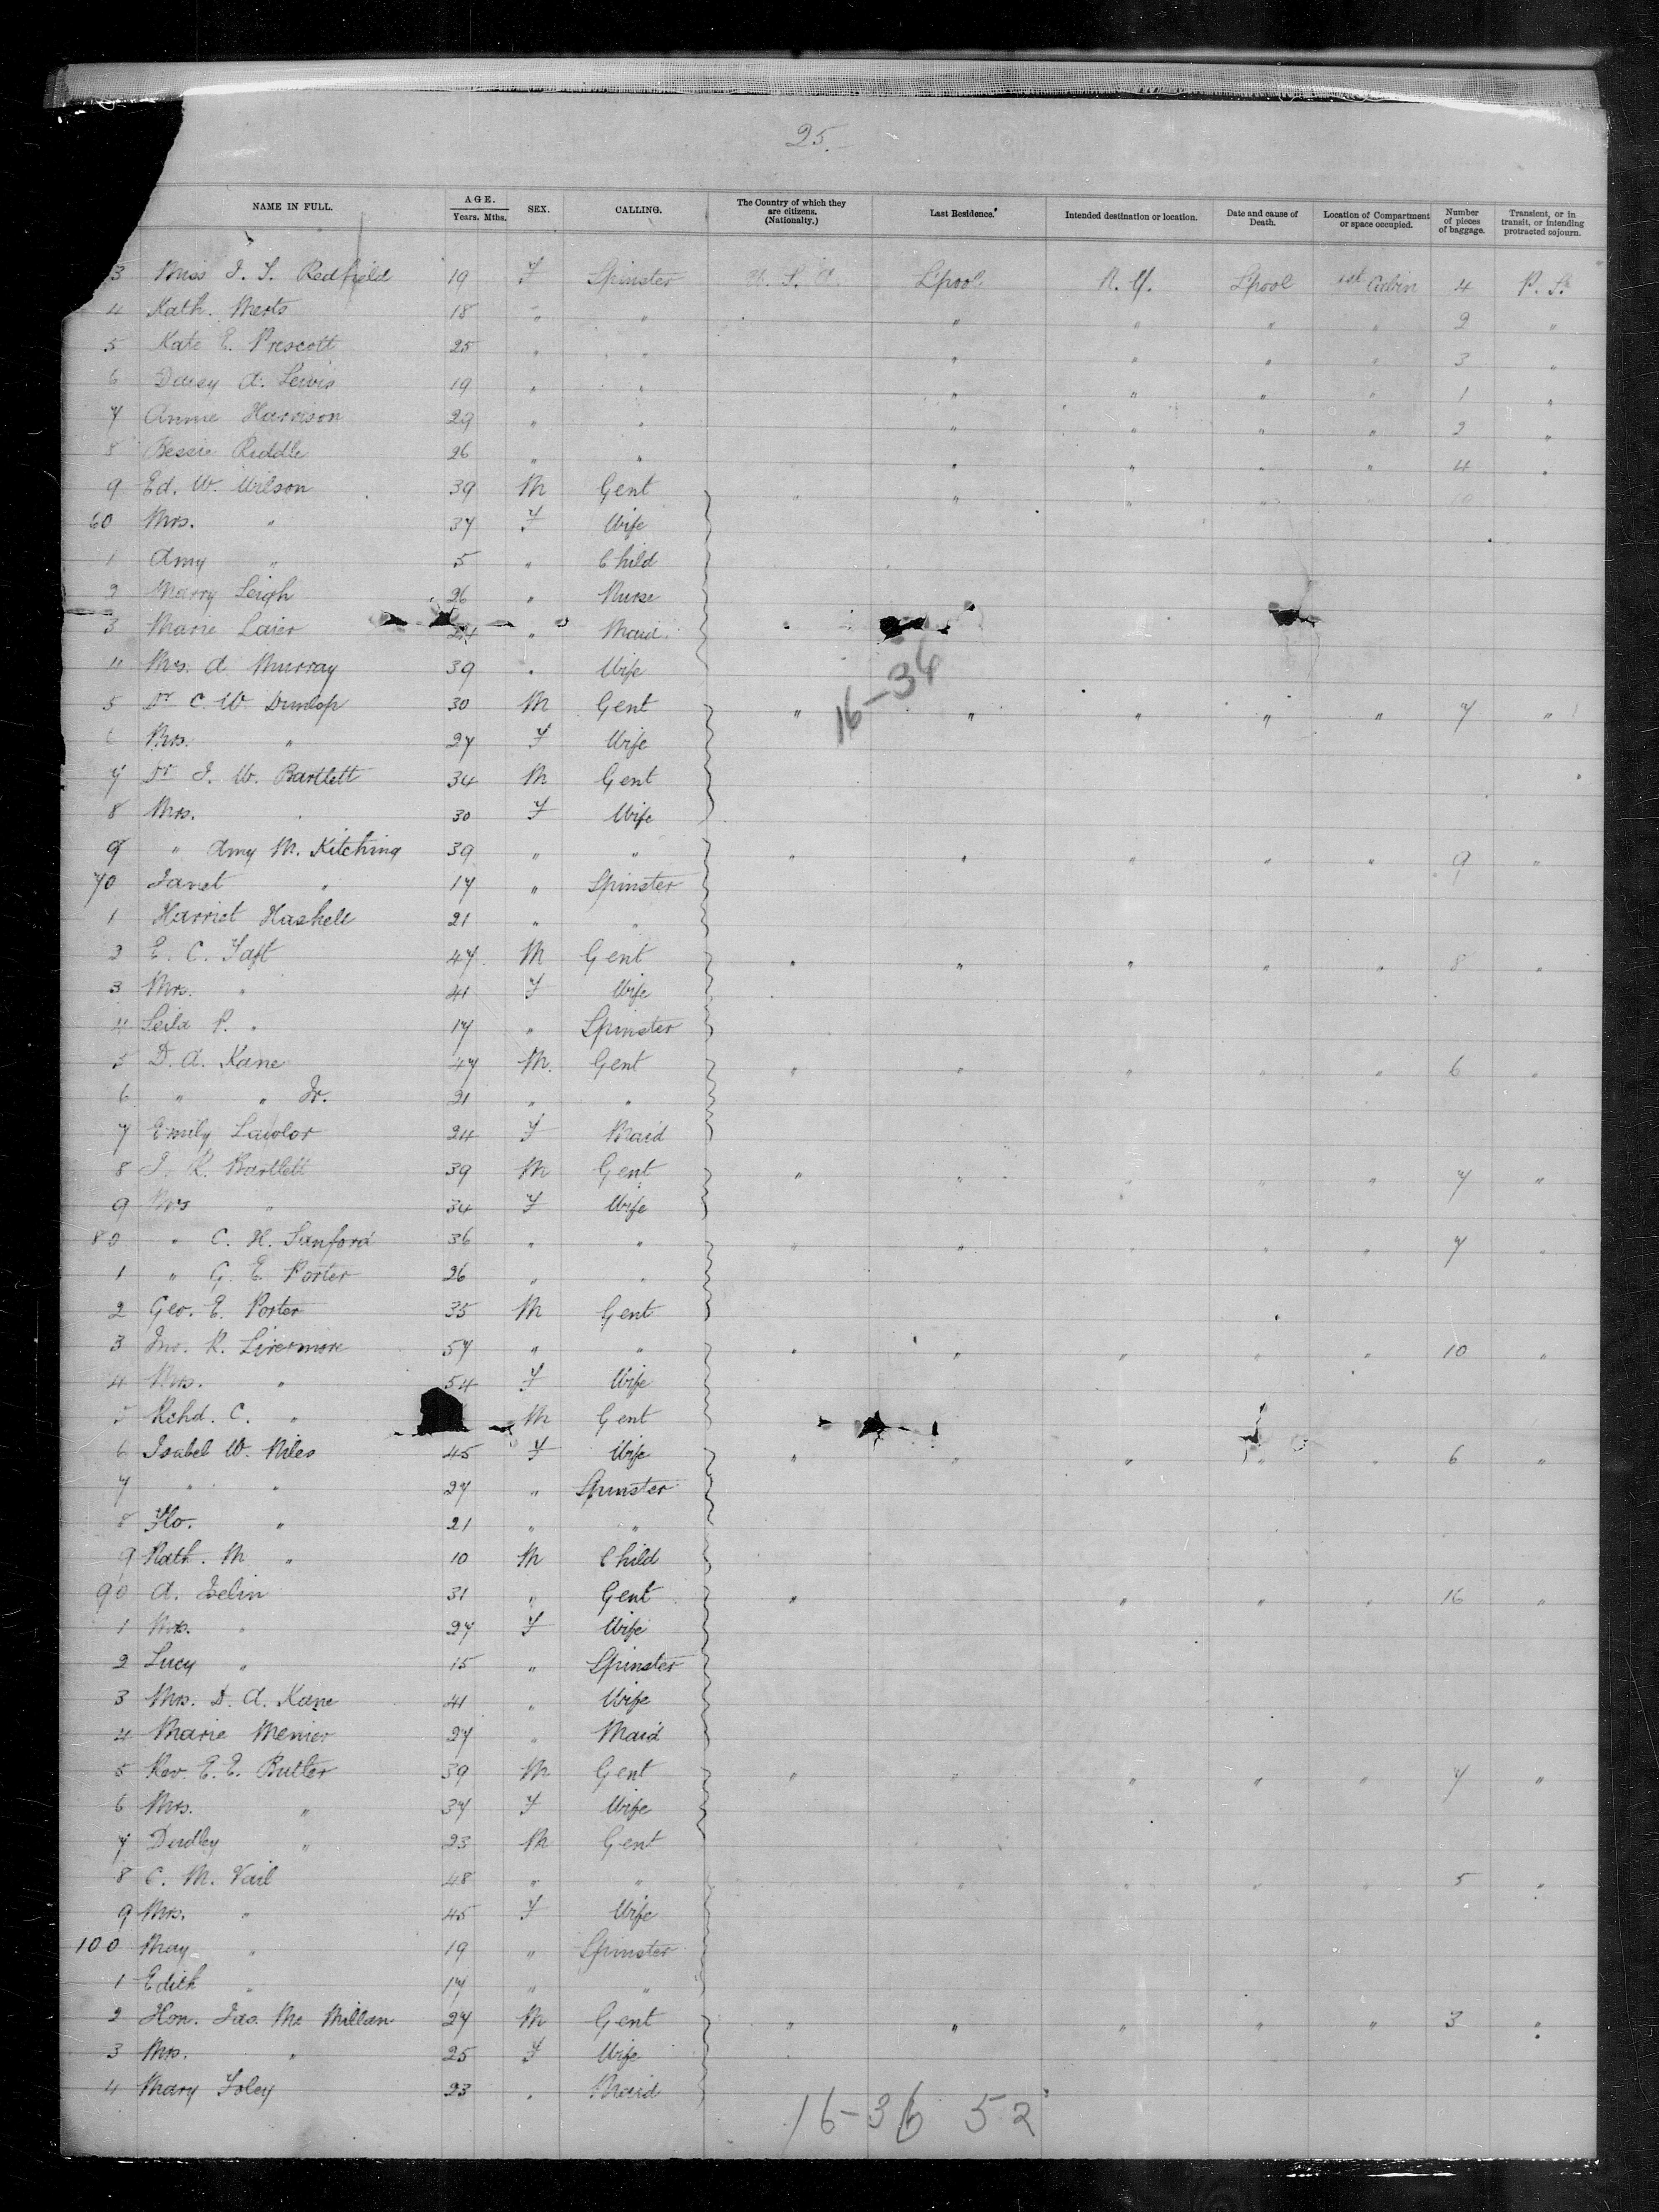 25.
NAME IN FULL. AGE. Years. Mths. SEX. CALLING. The Country of which they are citizens. (Nationality.) Last Residence. Intended destination or location. Date and cause of Death. Location of Compartment or space occupied. Number of pieces of baggage. Transient, or in transit, or intending protracted sojourn.
3 Miss J. S. Redfield 19 F Spinster U. S. A. L'pool N. Y. L'pool 1st Cabin 4 P. S.
4 Kath. Merts 18 " " " " " " 2 "
5 Kate E. Prescott 25 " " " " " " 3 "
6 Daisy A. Lewis 19 " " " " " " 1 "
7 Annie Harrison 29 " " " " " " 2 "
8 Bessie Riddle 26 " " " " " " 4 "
9 Ed. W. Wilson 39 M Gent " " " " " 10
60 Mrs. " 37 F Wife
1 Amy " 5 " Child
2 Marry Leigh 26 " Nurse
3 Marie Laier 24 " Maid
4 Mrs. A Murray 39 " Wife
16-36
5 Dr C. W Dunlop 30 M Gent " " " " " 7 "
6 Mrs. " 27 F Wife
7 Dr J. W. Bartlett 34 M Gent
8 Mrs. " 30 F Wife
9 " Amy M. Kitching 39 " " " " " " " 9 "
70 Janet " 17 " Spinster
1 Harriet Haskell 21 " "
2 E. C. Taft 47 M Gent " " " " " 8 "
3 Mrs. " 41 F Wife
4 Leila P. " 17 " Spinster
5 D. A. Kane 47 M. Gent " " " " " 6 "
6 " " Jr. 21 " "
7 Emily Lawlor 24 F Maid
8 J. R. Bartlett 39 M Gent " " " " " 7 "
9 Mrs " 34 F Wife
80 " C. H. Sanford 36 " " " " " " " 7 "
1 " G. E. Porter 26 " "
2 Geo. E. Porter 35 M Gent
3 Jno. R. Livermore 57 " " " " " " " 10 "
4 Mrs. " 54 F Wife
5 Rchd. C. " M Gent
6 Isabel W. Niles 45 F Wife " " " " " 6 "
7 " " 27 " Spinster
8 Flo. " 21 " "
9 Nath. M " 10 M Child
90 A. Iselin 31 " Gent " " " " 16 "
1 Mrs. " 27 F Wife
2 Lucy " 15 " Spinster
3 Mrs. D. A. Kane 41 " Wife
4 Marie Menier 27 " Maid
5 Rev. E. E. Butler 39 M Gent " " " " " 7 "
6 Mrs. " 37 F Wife
7 Dudley " 23 M Gent
8 C. M. Vail 48 " " " " " " 5 "
9 Mrs. " 45 F Wife
100 May " 19 " Spinster
1 Edith " 17 " "
2 Hon. Jas. Mc Millan 27 M Gent " " " " " 3 "
3 Mrs. " 25 F Wife
4 Mary Foley 23 " Maid
16-36 52